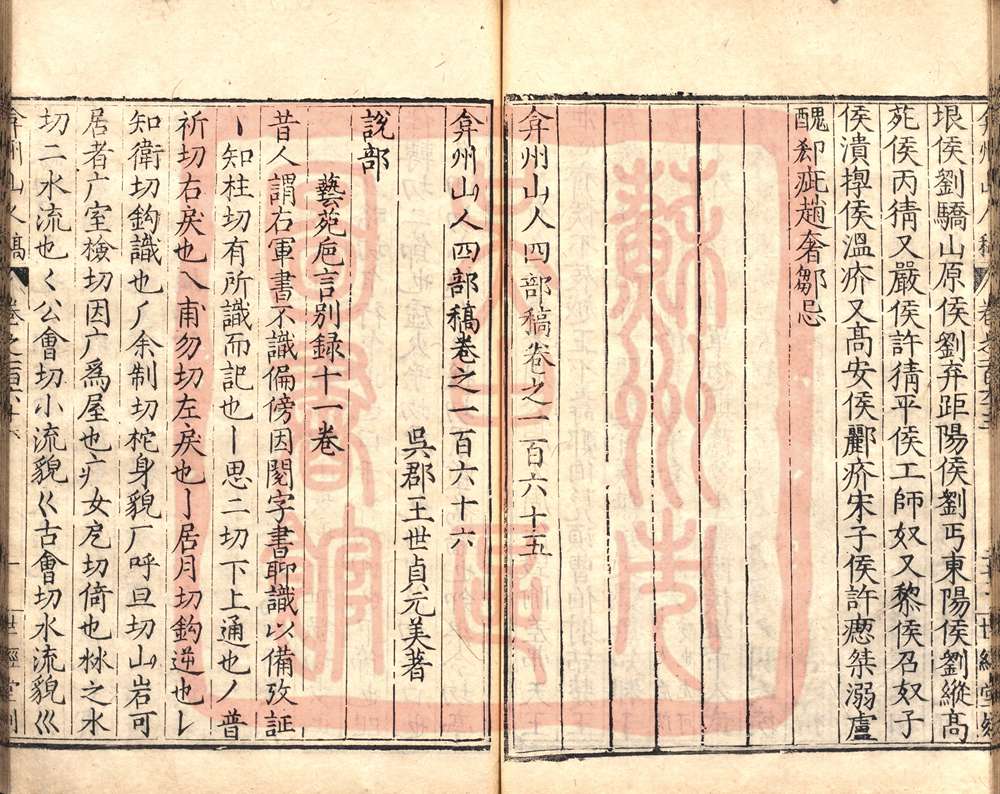 垠侯劉驕山原侯劉弃距陽侯劉丐東陽侯劉縱高
䓑侯丙猜又嚴侯許猜平侯工師奴又黎侯召奴子
侯潰㨶侯溫疥又高安侯酈疥宋子侯許瘛桀溺盧
醜郄疵趙奢鄒忌
弇州山人四部稿卷之一百六十五
弇州山人四部稿卷之一百六十六
吳郡王世貞元美著
說部
藝苑巵言別録十一卷
昔人謂右軍書不識偏傍因閱字書聊識以備攷証
丶知柱切有所識而記也丨思二切下上通也丿普
祈切右戾也乀甫勿切左戾也亅居月切鈎逆也𠄌
知衛切鈎識也𠂆余制切柁身貌厂呼旦切山岩可
居者广室檢切因广爲屋也疒女戹切倚也沝之水
切二水流也𡿨公會切小流貌巜古會切水流貌巛